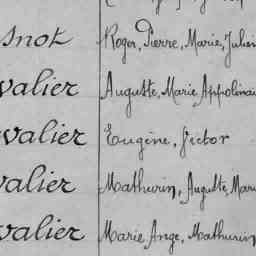 snok Roger, Pierre, Marie, Julien
valier Auguste, Marie Appolinai
valier Eugène, Victor
valier Mathurin, Auguste, Mari
valier Marie Ange, Mathurin